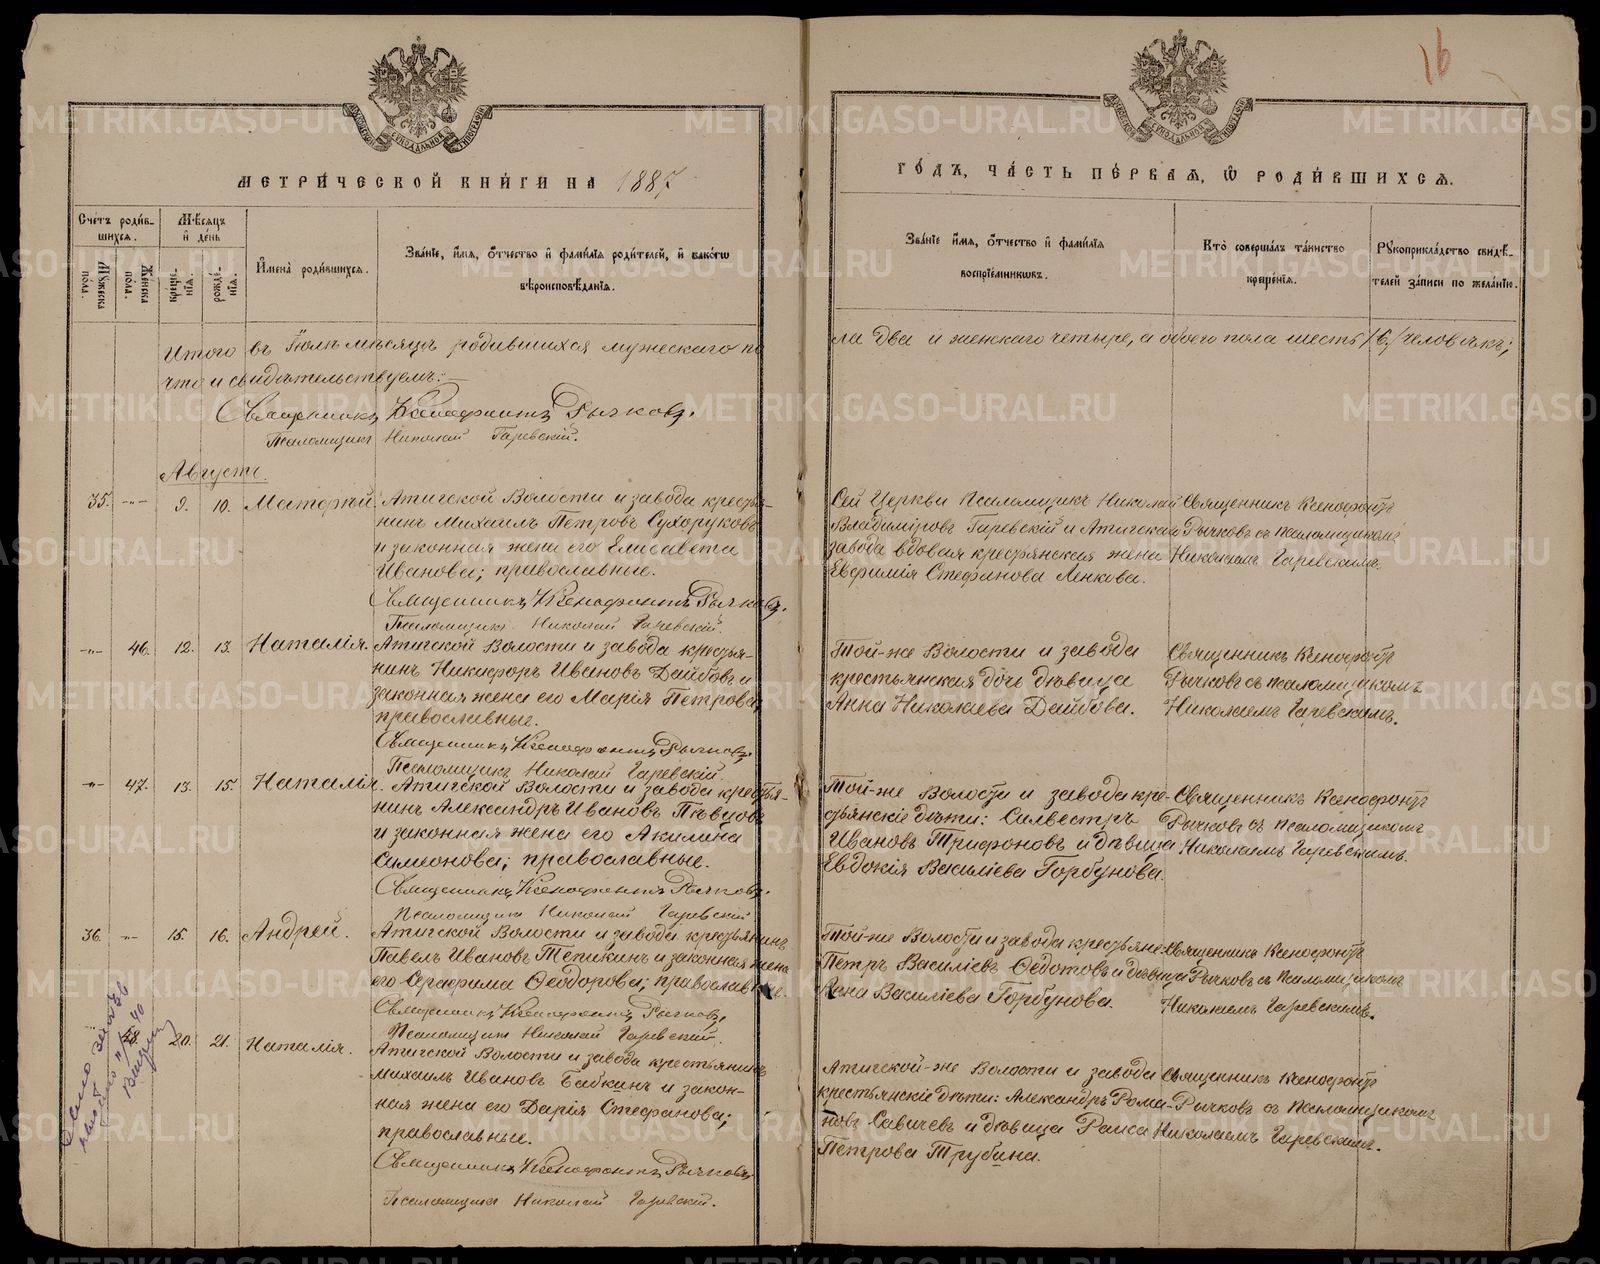 16
МЕТРИ́ЧЕСКОЙ КНИ́ГИ НА 1887
ГО́ДЪ, ЧА́СТЬ ПЕ́РВАѦ, Ѽ РОДИ́ВШИХСѦ.
Сче́тъ роди́в-
шихсѧ.
Мѣ́сѧцъ
и де́нь
Му́жеска
по́ла.
Же́нска
по́ла.
креще-
нїѧ.
рожде́-
нїѧ.
И҆мена̀ роди́вшихсѧ.
Зва́нїе, и҆́мѧ, ѻ҆́тчество и҆ фами́лїѧ роди́телей, и҆ како́гѡ
вѣроисповѣ́данїѧ.
Зва́нїе и҆́мѧ, ѻ҆́тчество и҆ фами́лїѧ
воспрїе́мниковъ.
Кто̀ соверша́лъ та́инство
креще́нїѧ.
Рꙋкоприкла́дство свидѣ́-
телей за́писи по жела́нїю.
Итого въ Іюлѣ мѣсяцѣ родившихся мужескаго по
ла два и женскаго четыре, а обоего пола шесть /6/ человѣкъ;
что и свидѣтельствуемъ:
Священникъ Ксенофонтъ Рычковъ.
Псаломщикъ Николай Гаревскій.
Августъ.
35. -„- 9. 10. Матѳѣй.
Атигской Волости и завода крестья-
нинъ Михаилъ Петровъ Сухоруковъ
и законная жена его Елисавета
Иванова; православные.
Священникъ Ксенофонтъ Рычковъ.
Псаломщикъ Николай Гаревскій.
Сей Церкви Псаломщикъ Николай
Владиміровъ Гаревскій и Атигскаго
завода вдовая крестьянская жена
Евфимія Стефанова Ленкова.
Священникъ Ксенофонтъ
Рычковъ съ псаломщикомъ
Николаемъ Гаревскимъ.
-„- 46. 12. 13. Наталія.
Атигской Волости и завода крестья-
нинъ Никифоръ Ивановъ Дайбовъ и
законная жена его Марія Петрова;
православные.
Священникъ Ксенофонтъ Рычковъ.
Псаломщикъ Николай Гаревскій.
Той-же Волости и завода
крестьянская дочь дѣвица
Анна Николаева Дайбова.
Священникъ Ксенофонтъ
Рычковъ съ псаломщикомъ
Николаемъ Гаревскимъ.
-„- 47. 13. 15. Наталія.
Атигской Волости и завода крестья-
нинъ Александръ Ивановъ Пѣвцовъ
и законная жена его Акилина
Симеонова; православные.
Священникъ Ксенофонтъ Рычковъ.
Псаломщикъ Николай Гаревскій
Той-же Волости и завода кре-
стьянскіе дѣти: Силвестръ
Ивановъ Трифоновъ и дѣвица
Евдокія Василіева Горбунова.
Священникъ Ксенофонтъ
Рычковъ съ псаломщикомъ
Николаемъ Гаревскимъ.
36. -„- 15. 16. Андрей.
Атигской Волости и завода крестьянинъ
Павелъ Ивановъ Тепикинъ и законная жена
его Серафима Ѳеодорова; православные.
Священникъ Ксенофонтъ Рычковъ.
Псаломщикъ Николай Гаревскій.
Той-же Волости и завода крестьяне:
Петръ Василіевъ Ѳедотовъ и дѣвица
Анна Василіева Горбунова.
Священникъ Ксенофонтъ
Рычковъ съ Псаломщикомъ
Николаемъ Гаревскимъ.
20. 21. Наталія.
Атигской Волости и завода крестьянинъ
Михаилъ Ивановъ Бабкинъ и закон-
ная жена его Дарія Стефанова;
православные.
Священникъ Ксенофонтъ Рычковъ
Псаломщикъ Николай Гаревскій.
Атигской-же Волости и завода
крестьянскіе дѣти: Александръ Рома-
новъ Савичевъ и дѣвица Раиса
Петрова Трубина.
Священникъ Ксенофонтъ
Рычковъ съ Псаломщикомъ
Николаемъ Гаревскимъ.
METRIKI.GASO-URAL.RU